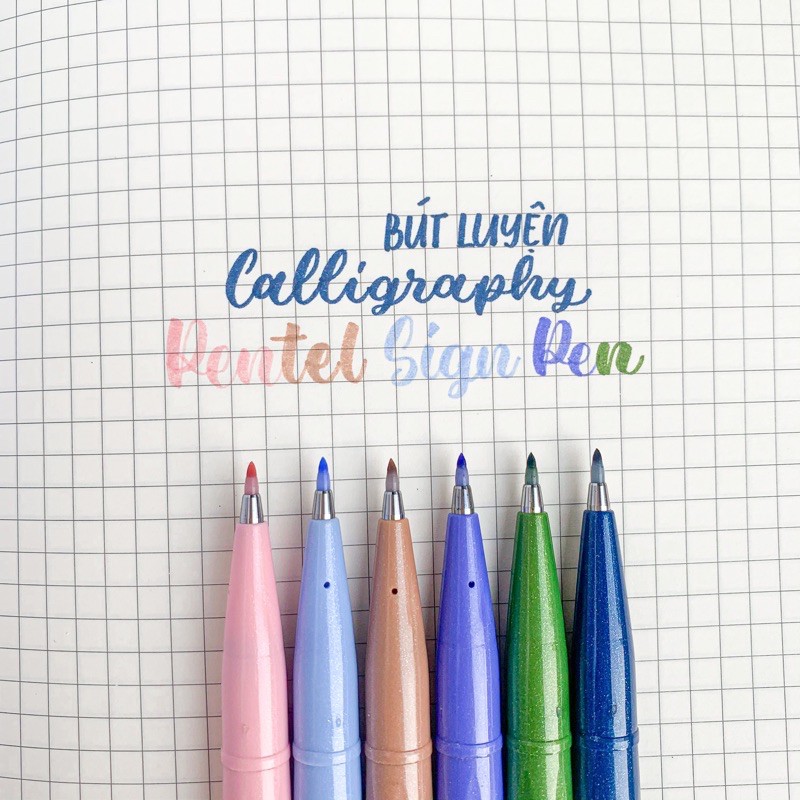 BÚT LUYỆN
Calligraphy
Pentel Sign Pen